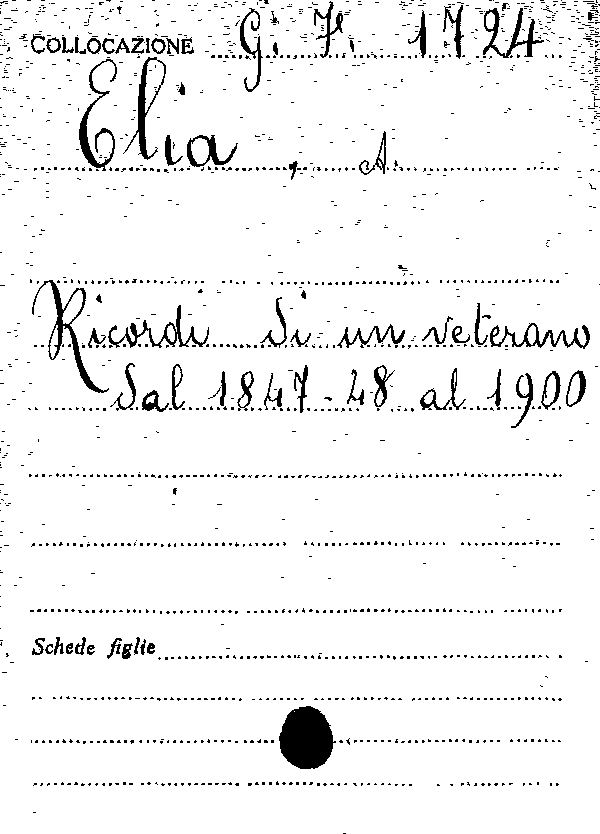 COLLOCAZIONE G. 7. 1724
Elia, A.
Ricordi di un veterano
dal 1847-48 al 1900
Schede figlie